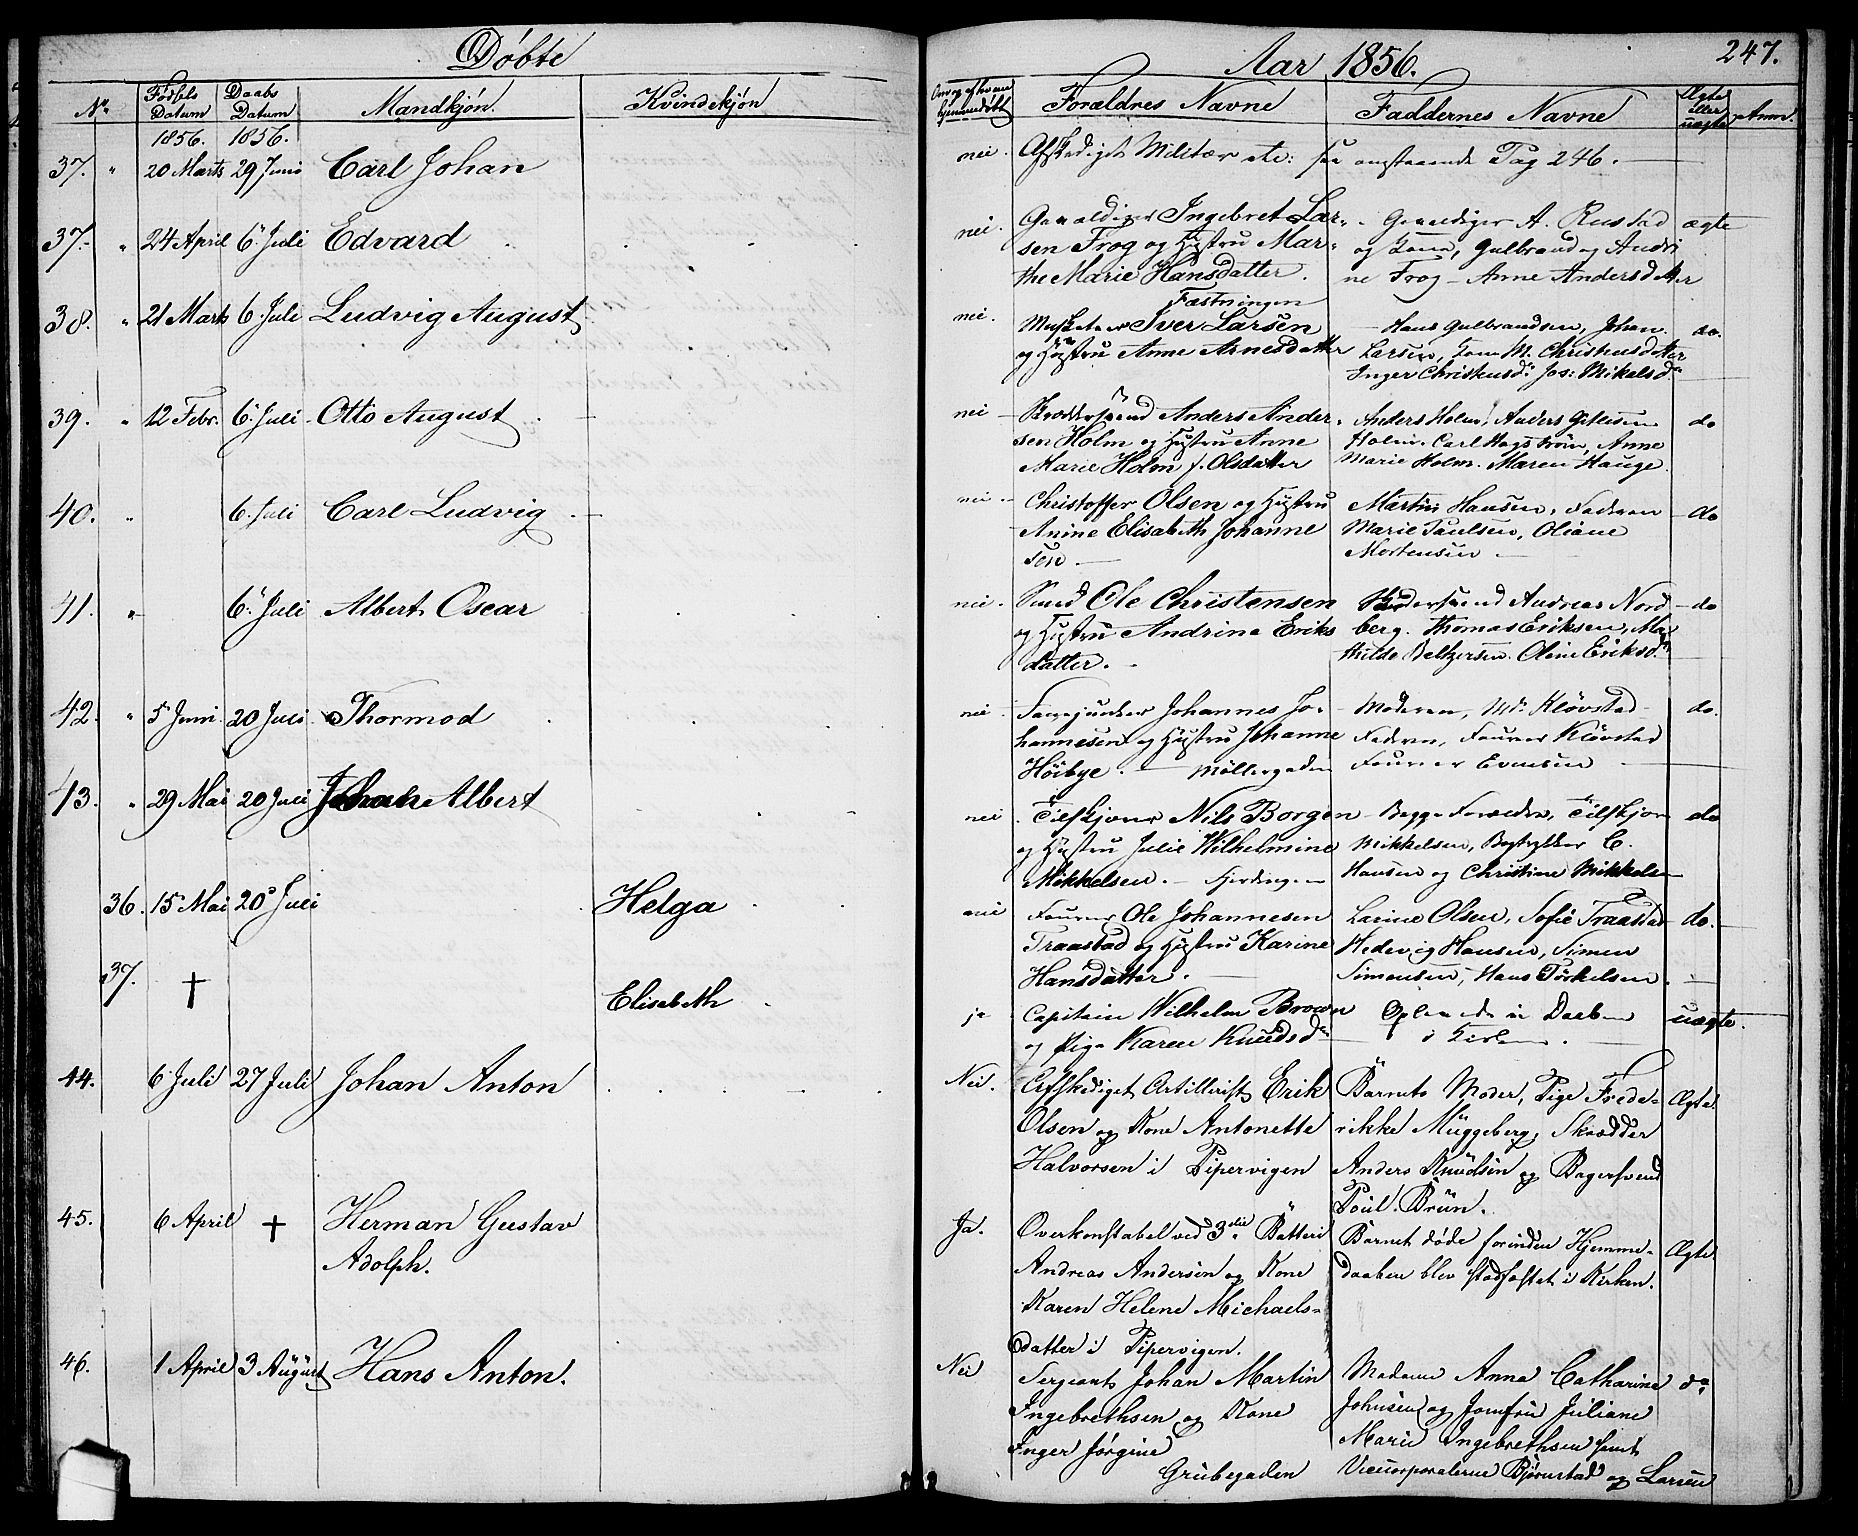 Døbte
Aar 1856.
247.
No
Fødsels Datum
Daabs Datum
Mandkjøn.
Kvindekjøn
Om og af hvem hjemmedøbt
Forældres Navne
Faddernes Navne
Ægte eller uægte
Anm.
1856. 1856.
37. " 20 Marts 29 Juni Carl Johan
nei. Afskediget Militær etc: see Pag 246.
37. " 24 April 6 Juli Edvard
nei. Gevaldiger Ingebret Lar-
sen Frog og Hustru Mar-
the Marie Hansdatter.
Fæstningen
Gevaldiger A. Rustad
og Kone, Gulbrand og Andri
ne Frog - Anne Andersdatter
ægte
38. " 21 Marts 6 Juli Ludvig August
nei. Musketeer Iver Larsen
og Hustru Anne Arnesdatter
Hans Gulbrandsen, Johan
Larsen, Kone M. Christensdatter
Inger Christensd: Jos: Mikelsd.
do.
39. " 12 Febr. 6 Juli Otto August
nei Skræddersvend Anders Ander-
sen Holm og Hustru Anne
Marie Holm f. Olsdatter
Anders Holm, Anders
Holm. Carl Hagstrøm, Anne
Marie Holm. Maren Hauge.
do
40. " 6 Juli Carl Ludvig
nei Christoffer Olsen og Hustru
Anine Elisabeth Johanne
sen
Martin Hansen, Faderen
Marie Paulsen, Oliane
Mortensen
do
41. " 6 Juli Albert Oscar
nei. Smed Ole Christensen
og Hustru Andrine Eriks
datter.
Andreas Nord
berg. Thomas Eriksen, Ma
thilde Beltzersen. Oline Eriksd.
do
42. " 5 Juni 20 Juli Thormod
nei Johannes Jo-
hannesen og Hustru Johanne
Höibye. Möllergaden
Moderen, Md. Kløvstad
Faderen, Fourer Kløvstad
Fourer Evensen
do.
43. " 29 Mai 20 Juli Johan Albert
nei Tilskjærer Nils Borgen
og Hustru Julie Wilhelmine
Mikkelsen.
Begge Forældre, Tilskjær
Mikkelsen, Bogtrykker C.
Hansen og Christine Mikkelsen
do
36. 15 Mai 20 Juli Helga
nei Fourer Ole Johannesen
Traastad og Hustru Karine
Hansdatter.
Larine Olsen, Sofie Traastad
Hedevig Hansen, Simen
Simensen, Hans Torkelsen.
do.
37. † Elisabeth
ja Capitain Wilhelm Brown
og Pige Karen Knudsd.
Daaben
i Kirken.
uægte.
44. 6 Juli 27 Juli Johan Anton
Nei. Afskediget Artillerist Erik
Olsen og Kone Antonette
Halvorsen i Pipervigen
Barnets Moder, Pige Frede-
rikke Müggeberg, Skrædder
Anders Knudsen og Bagersvend
Poul Brün.
Ægte
45. 6 April † Herman Gustav
Adolph.
Ja. Overkonstabel ved 3die Batteri
Andreas Andersen og Kone
Karen Helene Michaels-
datter i Pipervigen.
Barnet døde forinden Hjemme-
daaben blev stadfæstet i Kirken.
Ægte
46. 1 April 3 August Hans Anton.
Nei Sergeant Johan Martin
Ingebrethsen og Kone
Inger Jørgine
Grübegaden
Madame Anna Catharina
Johnsen og Jomfru Juliane
Marie Ingebrethsen samt
Vicecorporalerne Bjørnstad og Larsen
do